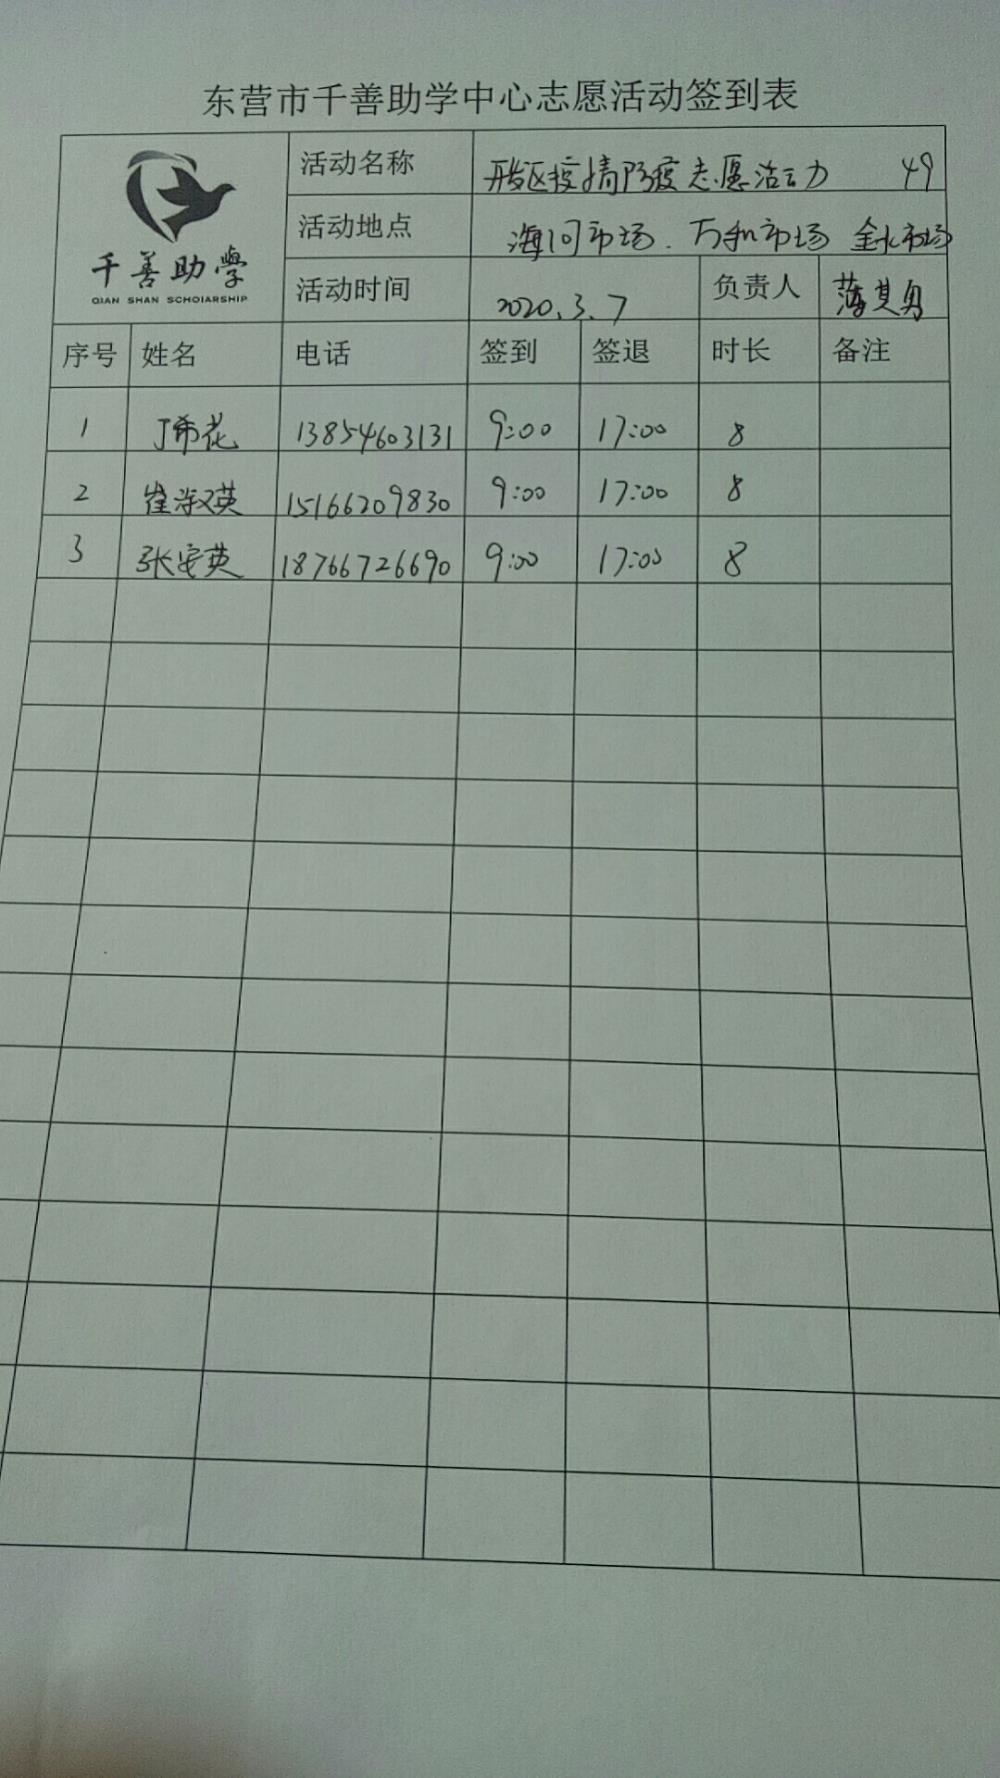 东营市千善助学中心志愿活动签到表
千善助學
QIAN SHAN SCHOlARSHIP
活动名称 开发区疫情防疫志愿活动 49
活动地点 海河市场.万和市场 金水市场
活动时间 2020.3.7 负责人 薄其男
序号 姓名 电话 签到 签退 时长 备注
1 丁希花 13854603131 9:00 17:00 8
2 崔淑英 15166209830 9:00 17:00 8
3 张安英 18766726690 9:00 17:00 8